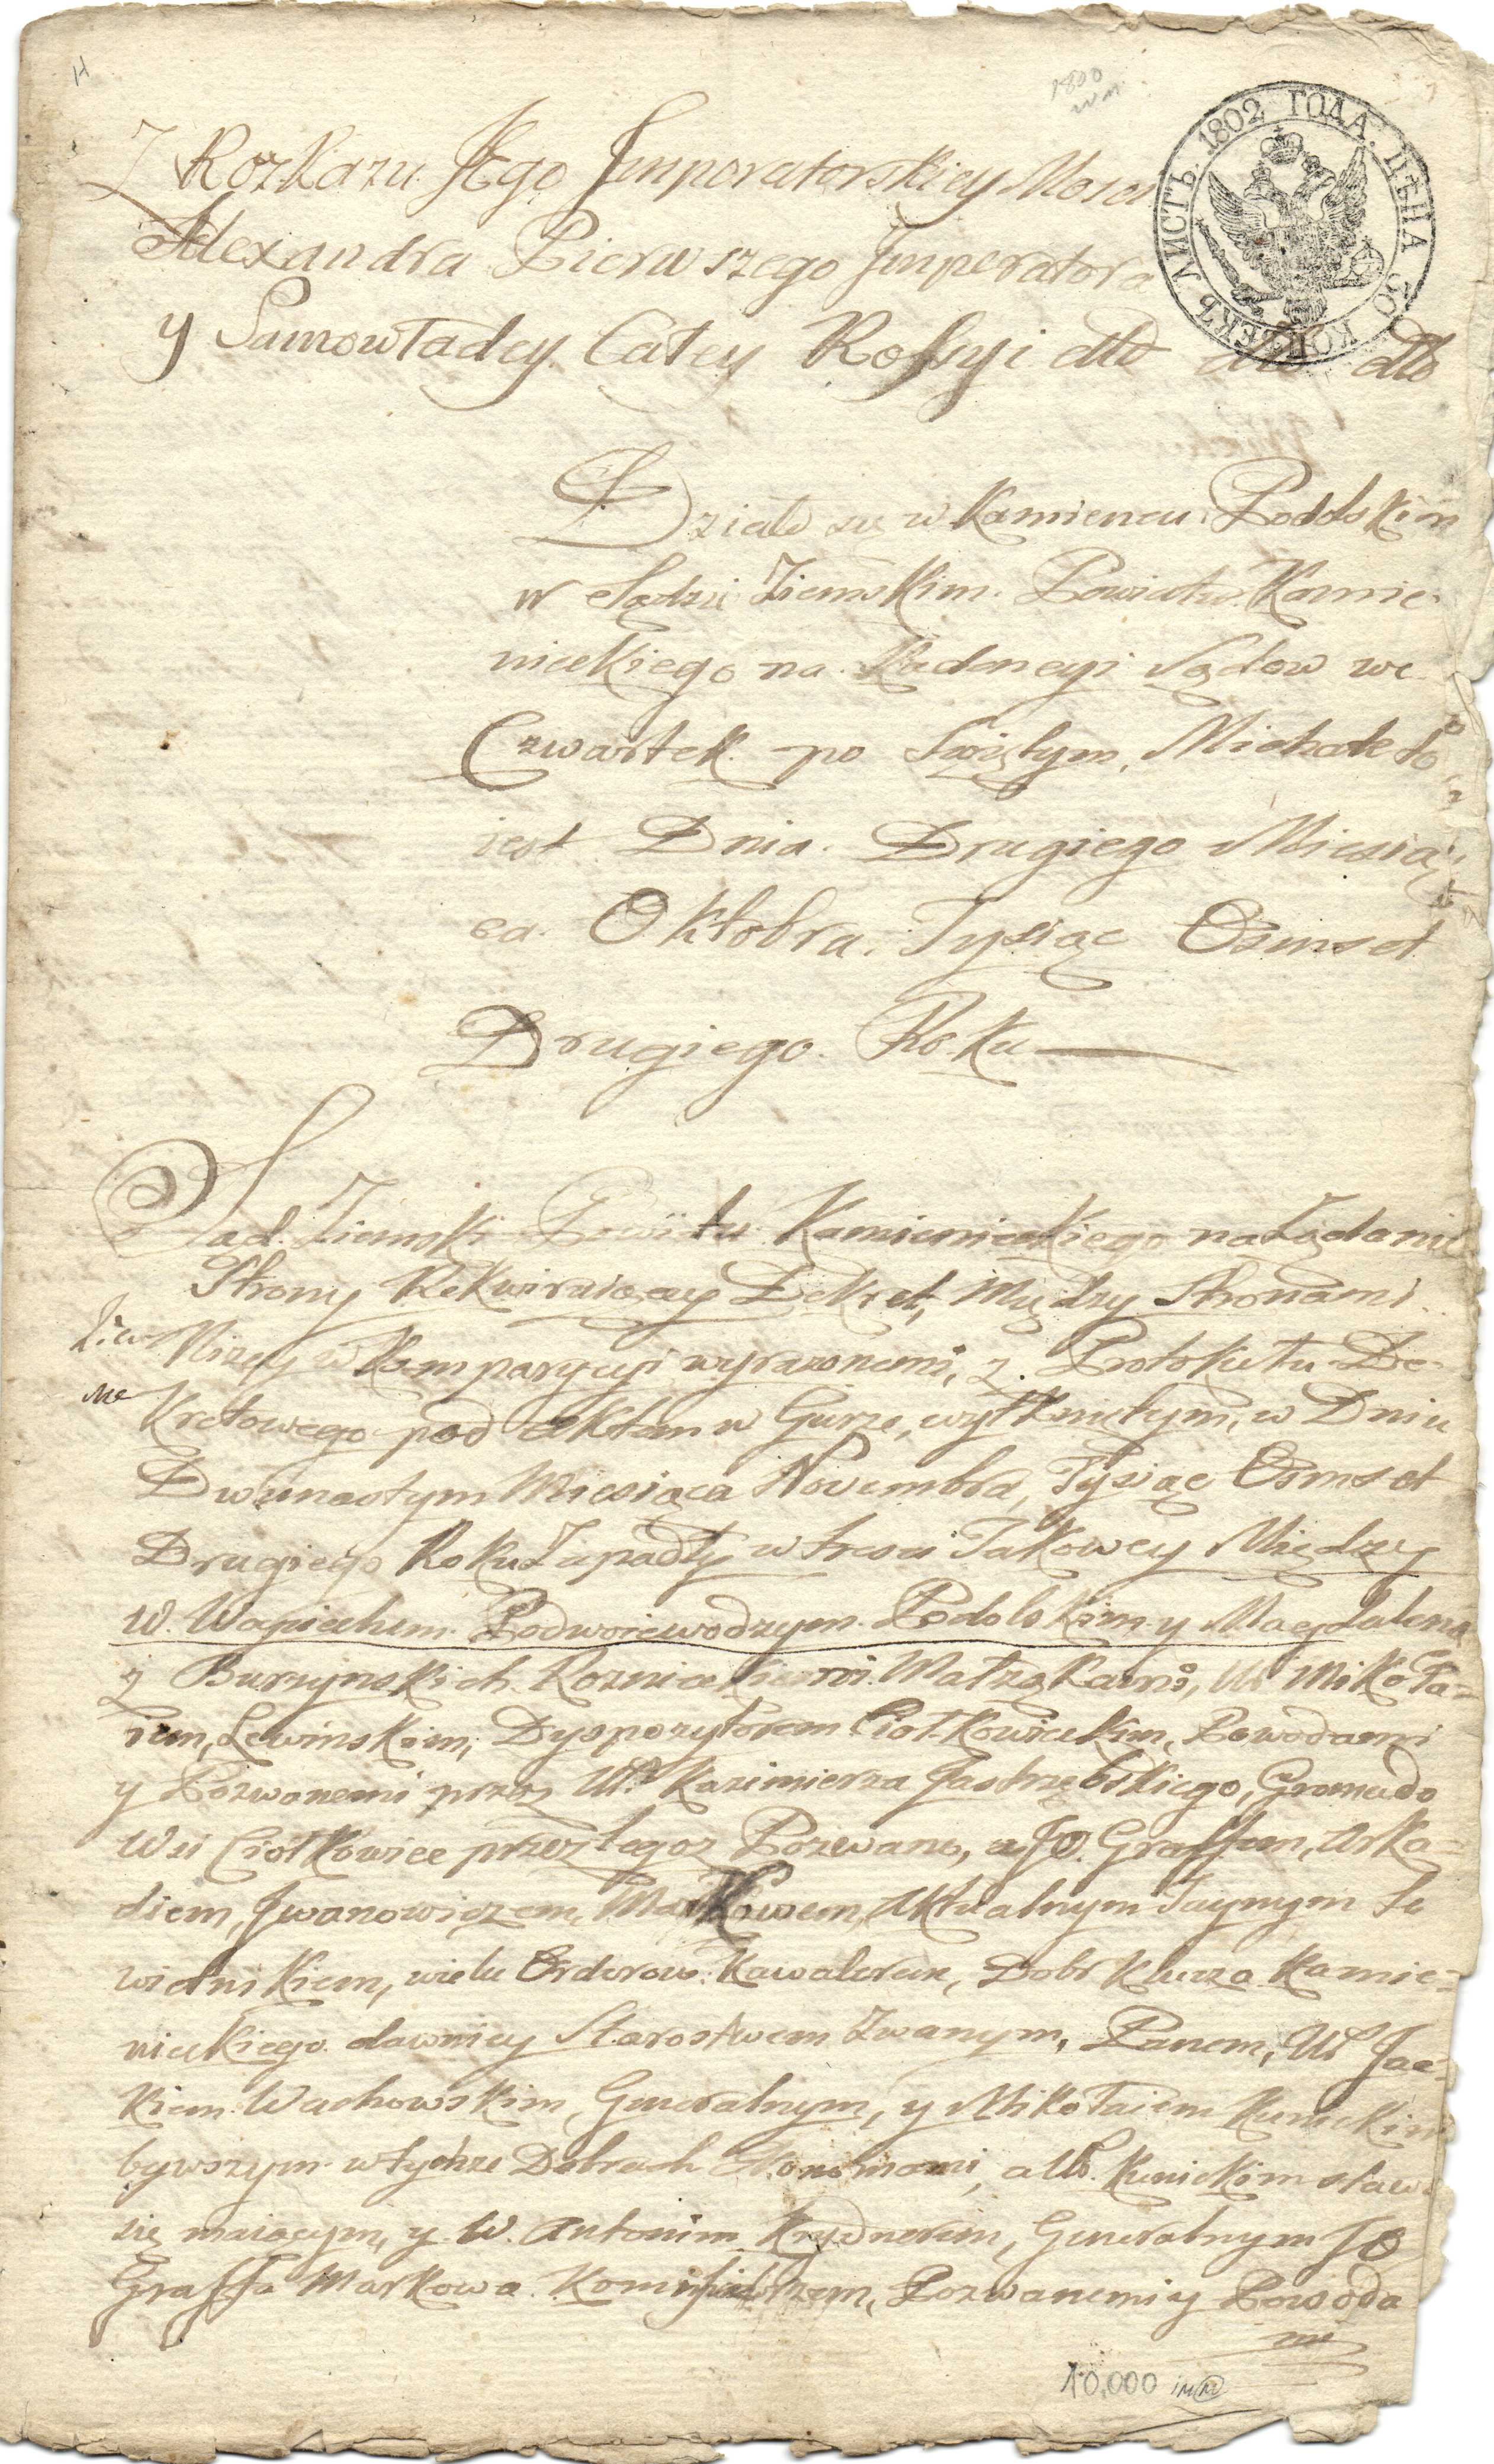 H
1800
wm
ЛИСТЪ. 1802 ГОДА. ЦѢНА 30 КОПѢЕКЪ
Z Rozkazu Jego Imperatorskiey Mości
Alexandra Pierwszego Imperatora
y Samowładcy Całey Rossyi etto etto etto
Działo się w Kamieńcu Podolskim
w Sądzie Ziemskim Powiatu Kamie-
nieckiego na Kadencyi Sądow we
Czwartek po Swiętym Michale to
iest Dnia Drugiego Miesią
ca Oktobra Tysiąc Osmset
Drugiego Roku
Sąd Ziemski Powiatu Kamienieckiego na Żądanie
Strony Rekwiruiącey Dekret, Między Stronami
Niżey w Komparycyi wyrażonemi, z Protokułu De-
kretowego pod Aktem w Gurze, wytkniętym, w Dniu
Dwunastym Miesiąca Novembra, Tysiąc Osmset
Drugiego Roku Zapadły w tresci Takowey Między
W. Woyciechem Podwoiewodzym Podolskim y Magdaleną
z Burzynskich Roznieckiemi Małżąkami, Ur Mikoła-
iem, Lewinskim, Dyspozytorem Ciołkowieckim, Powodami
y Pozwanemi przez Ur. Kazimierza Jastrzębskiego, Gromado
Wsi Ciołkowiec przez tegoż Pozwano, a JO. Graffem, Arka-
diem, Iwanowiczem, Markowem, Aktualnym Taynym So
wietnikiem, wielu Orderow Kawalerem, Dobr Klucza Kamie-
nieckiego dawniey Starostwem Zwanym, Panem, Ur Jac-
kiem Wachowskim, Generalnym, y Mikołaiem Kunickim
bywszym w tychże Dobrach Ekonomami, a Ur. Kunickim staw
się maiącym, y W. Antonim Krydnerem, Generalnym JO
Graffa Markowa Kommissarzem, Pozwanemi y Powoda
mi
10,000